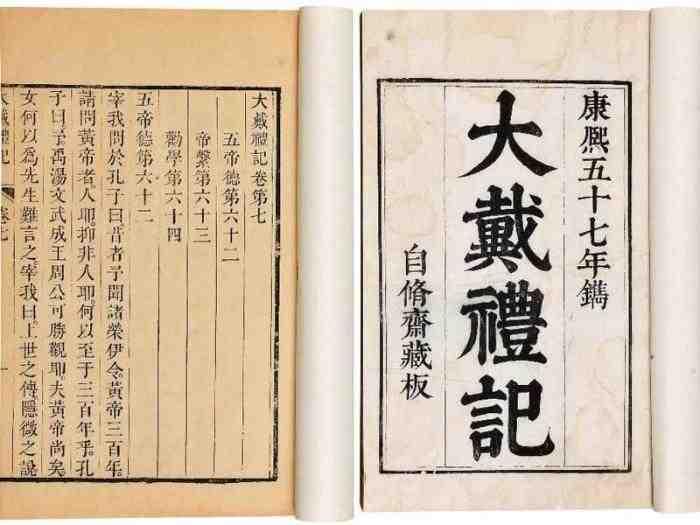 康熙五十七年鐫
大戴禮記
自脩齋藏板
大戴禮記卷第七
五帝德第六十二
帝繫第六十三
勸學第六十四
五帝德第六十二
宰我問於孔子曰昔者予聞諸榮伊令黃帝三百年
請問黃帝者人耶抑非人耶何以至于三百年乎孔
子曰予禹湯文武成王周公可勝觀耶夫黃帝尚矣
女何以爲先生難言之宰我曰上世之傳隱微之說
大戴禮記 卷七